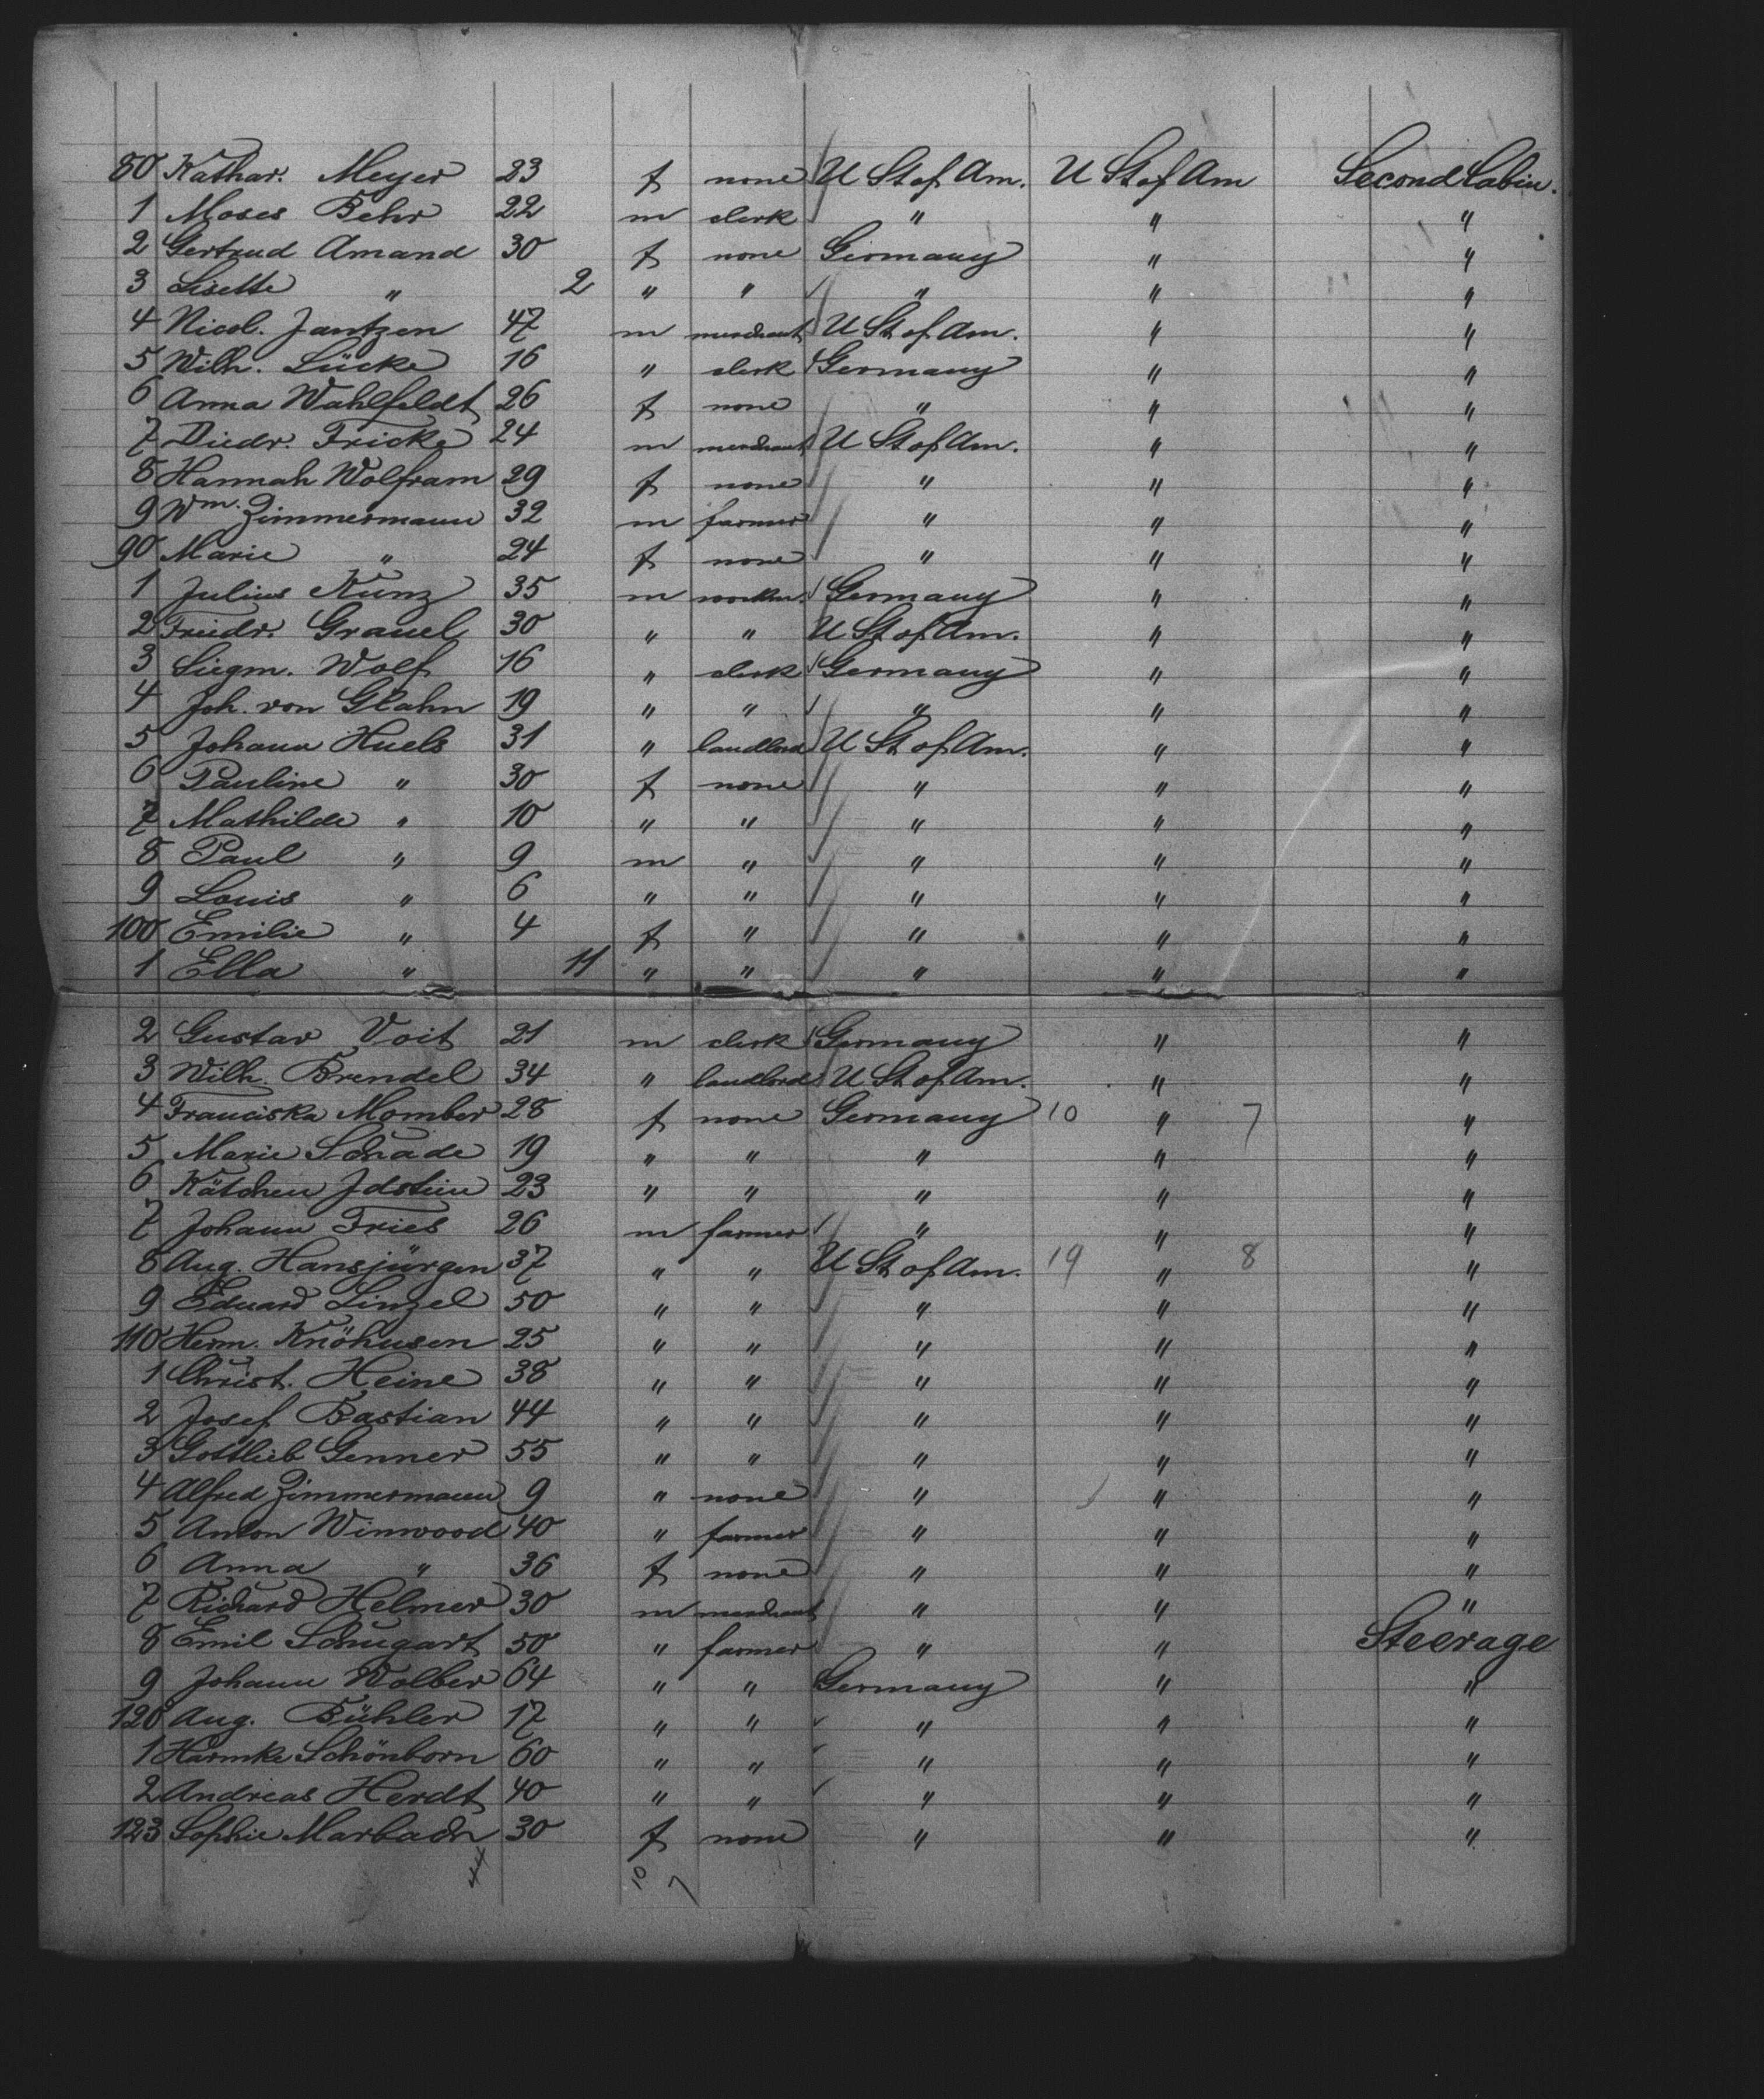 80 Kathar. Meyer 23 f none U St of Am. U St of Am Second Cabin.
1 Moses Behr 22 m clerk " " "
2 Gertrud Amand 30 f none Germany " "
3 Lisette " 2 " " " " "
4 Nicol. Jantzen 47 m merchant U St of Am. " "
5 Wilh. Lücke 16 " clerk Germany " "
6 Anna Wahlfeldt 26 f none " " "
7 Diedr. Fricke 24 m merchant U St of Am. " "
8 Hannah Wolfram 29 f none " " "
9 Wm. Zimmermann 32 m farmer " " "
90 Marie " 24 f none " " "
1 Julius Kunz 35 m workm. Germany " "
2 Friedr. Grauel 30 " " U St of Am. " "
3 Siegm. Wolf 16 " clerk Germany " "
4 Joh. von Glahn 19 " " " " "
5 Johann Huels 31 " landlord U St of Am. " "
6 Pauline " 30 f none " " "
7 Mathilde " 10 " " " " "
8 Paul " 9 m " " " "
9 Louis " 6 " " " " "
100 Emilie " 4 f " " " "
1 Ella " 11 " " " " "
2 Gustav Voit 21 m clerk Germany " "
3 Wilh. Brendel 34 " landlord U St of Am. " "
4 Franciska Momber 28 f none Germany 10 " 7 "
5 Marie Schade 19 " " " " "
6 Kätchen Jdstein 23 " " " " "
7 Johann Fries 26 m farmer " " "
8 Aug. Hansjürgen 37 " " U St of Am. 19 " 8 "
9 Eduard Linzel 50 " " " " "
110 Herm. Knöhusen 25 " " " " "
1 Christ. Heine 38 " " " " "
2 Josef Bastian 44 " " " " "
3 Gottlieb Genner 55 " " " " "
4 Alfred Zimmermann 9 " none " " "
5 Anton Winwood 40 " farmer " " "
6 Anna " 36 f none " " "
7 Richard Helmer 30 m merchant " " "
8 Emil Schugart 50 " farmer " " Steerage
9 Johann Wolber 64 " " Germany " "
120 Aug. Bühler 17 " " " " "
1 Harmke Schönborn 60 " " " " "
2 Andreas Herdt 40 " " " " "
123 Sophie Marbach 30 f none " " "
44 10 7